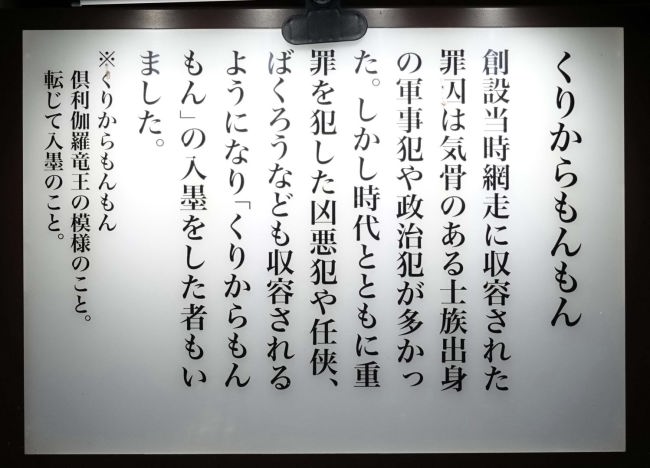 くりからもんもん
創設当時網走に収容された
罪囚は気骨のある士族出身
の軍事犯や政治犯が多かっ
た。しかし時代とともに重
罪を犯した凶悪犯や任侠、
ばくろうなども収容される
ようになり「くりからもん
もん」の入墨をした者もい
ました。
※くりからもんもん
倶利伽羅竜王の模様のこと。
転じて入墨のこと。